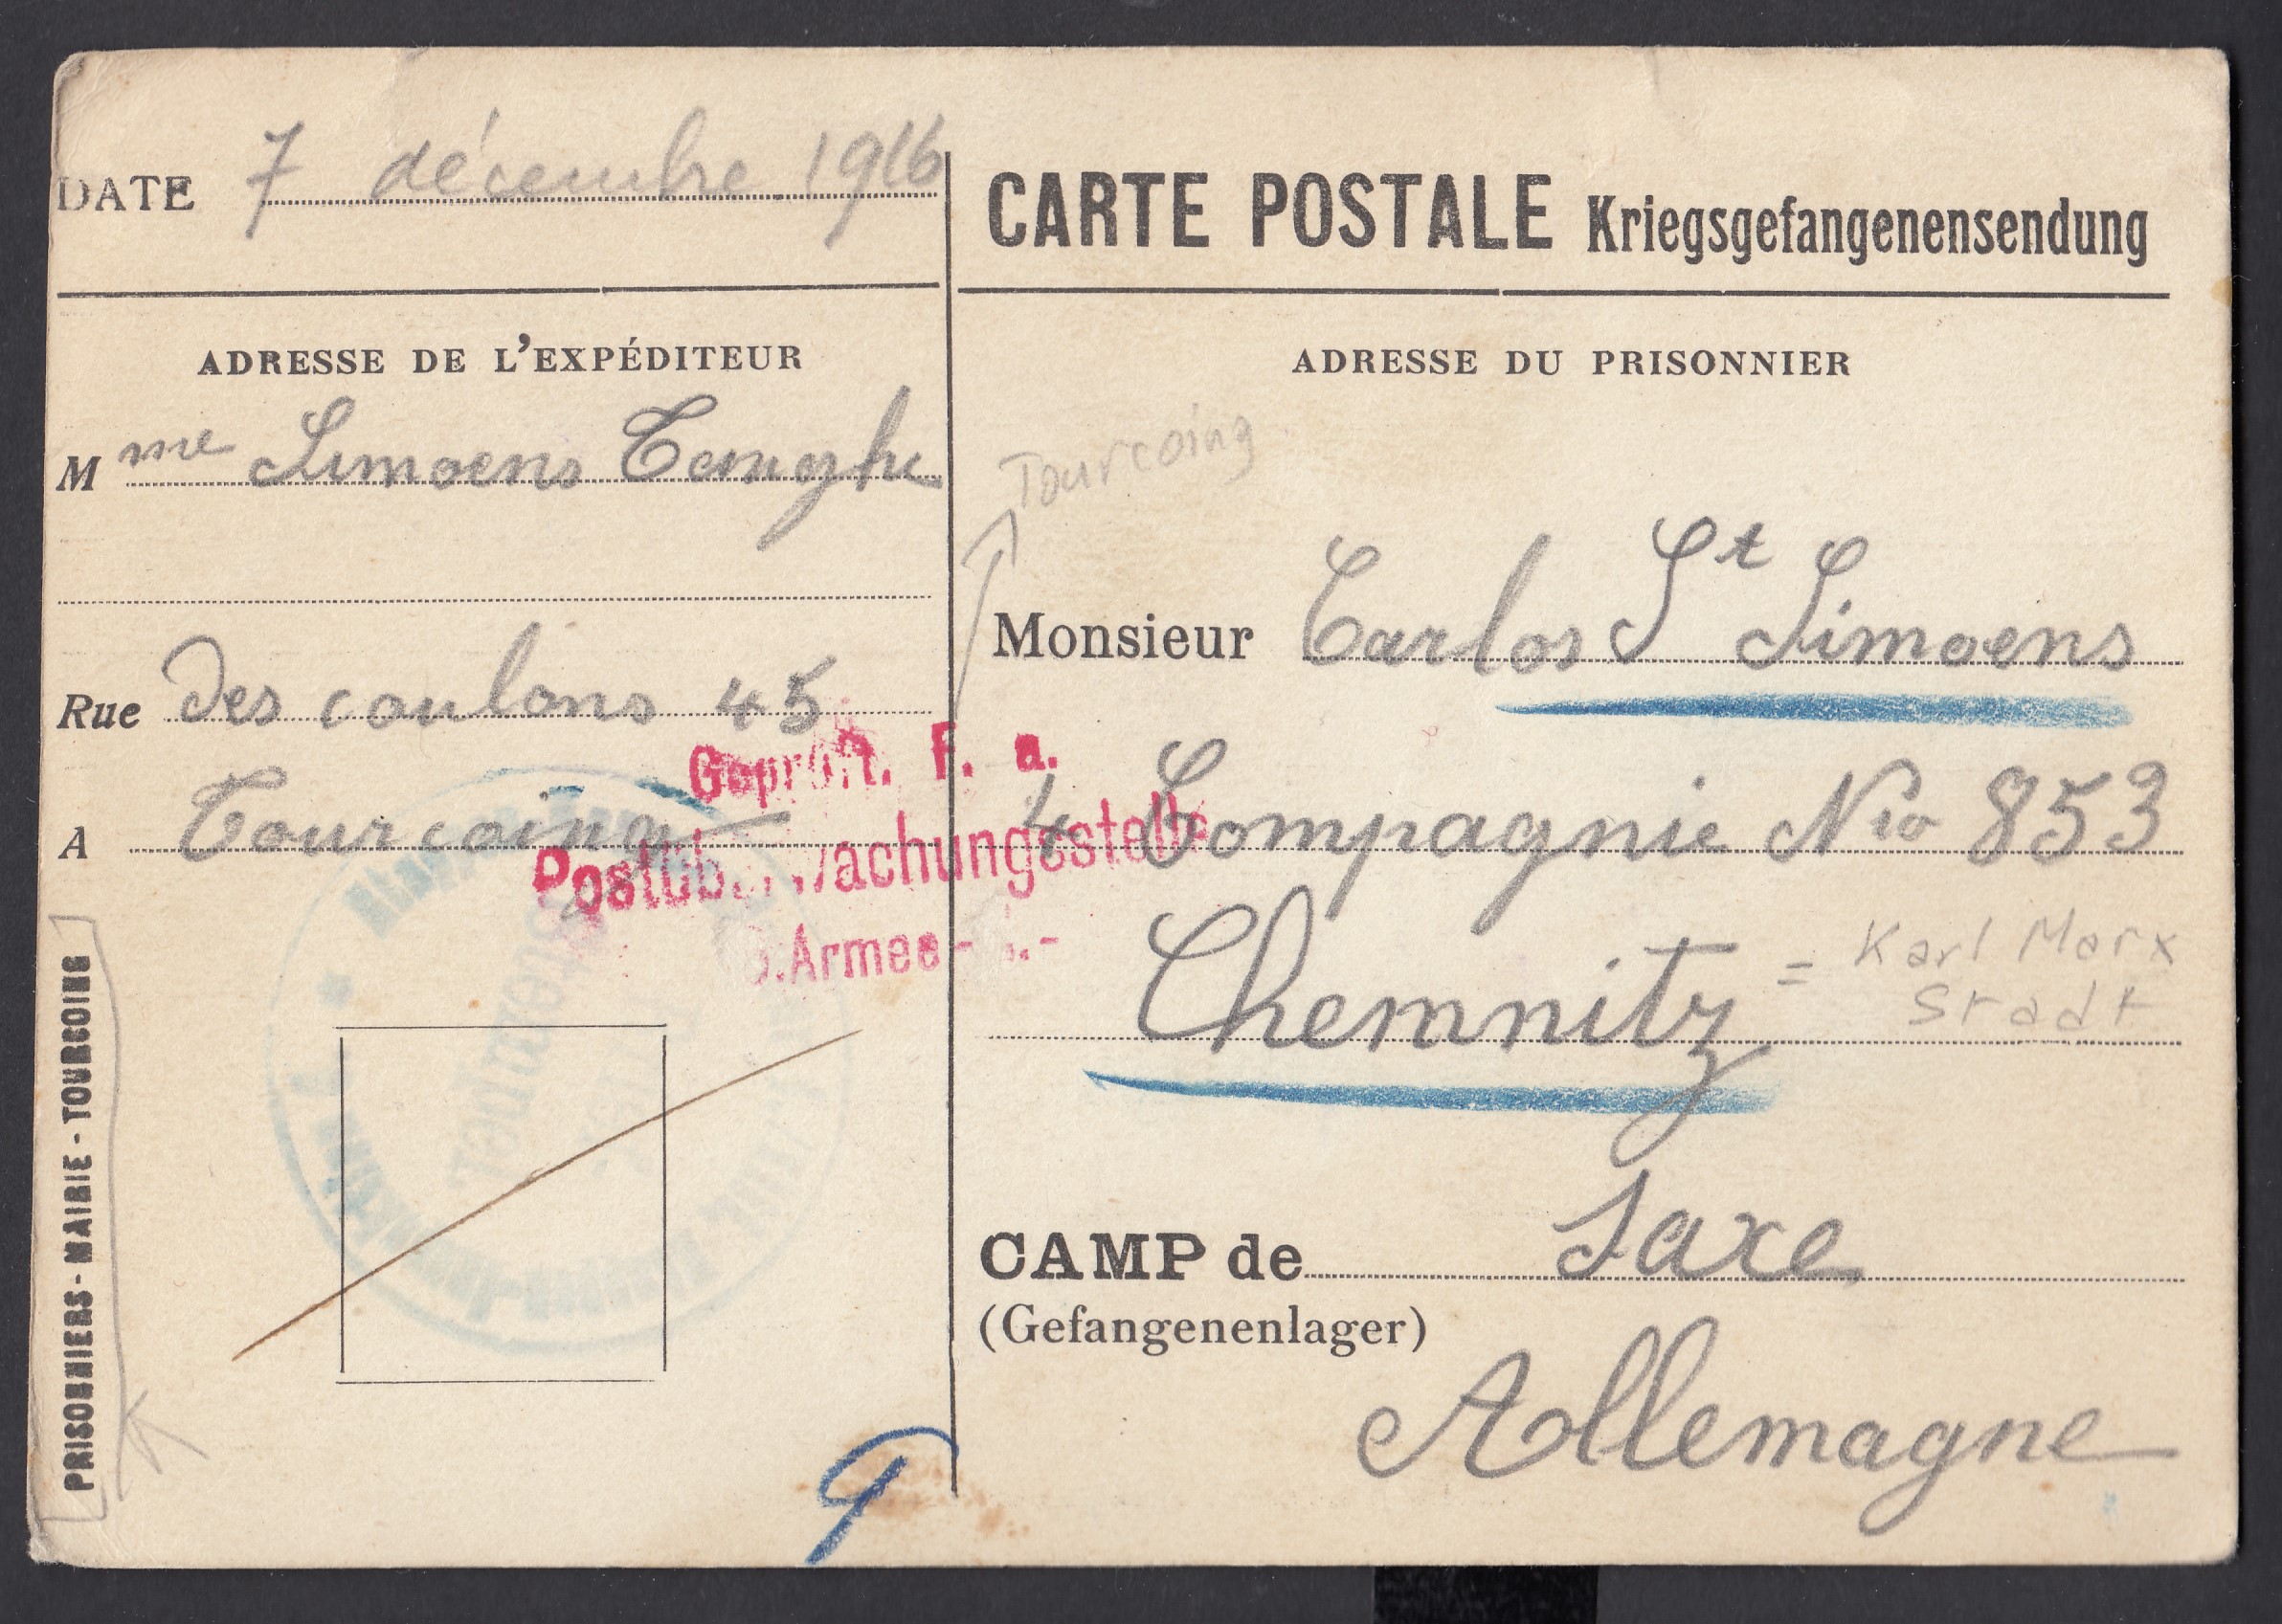 DATE 7 décembre 1916
ADRESSE DE L'EXPÉDITEUR
Mme Simoens
Rue des coulons 45
A Tourcoing
PRISONNIERS - MAIRIE - TOURCOING
Geprüft. F. a.
Postüberwachungsstelle
.Armee -
CARTE POSTALE Kriegsgefangenensendung
ADRESSE DU PRISONNIER
Tourcoing
Monsieur Carlos St Simoens
4 Compagnie Nro 853
Chemnitz = Karl Marx
Stadt
CAMP de Saxe
(Gefangenenlager)
Allemagne